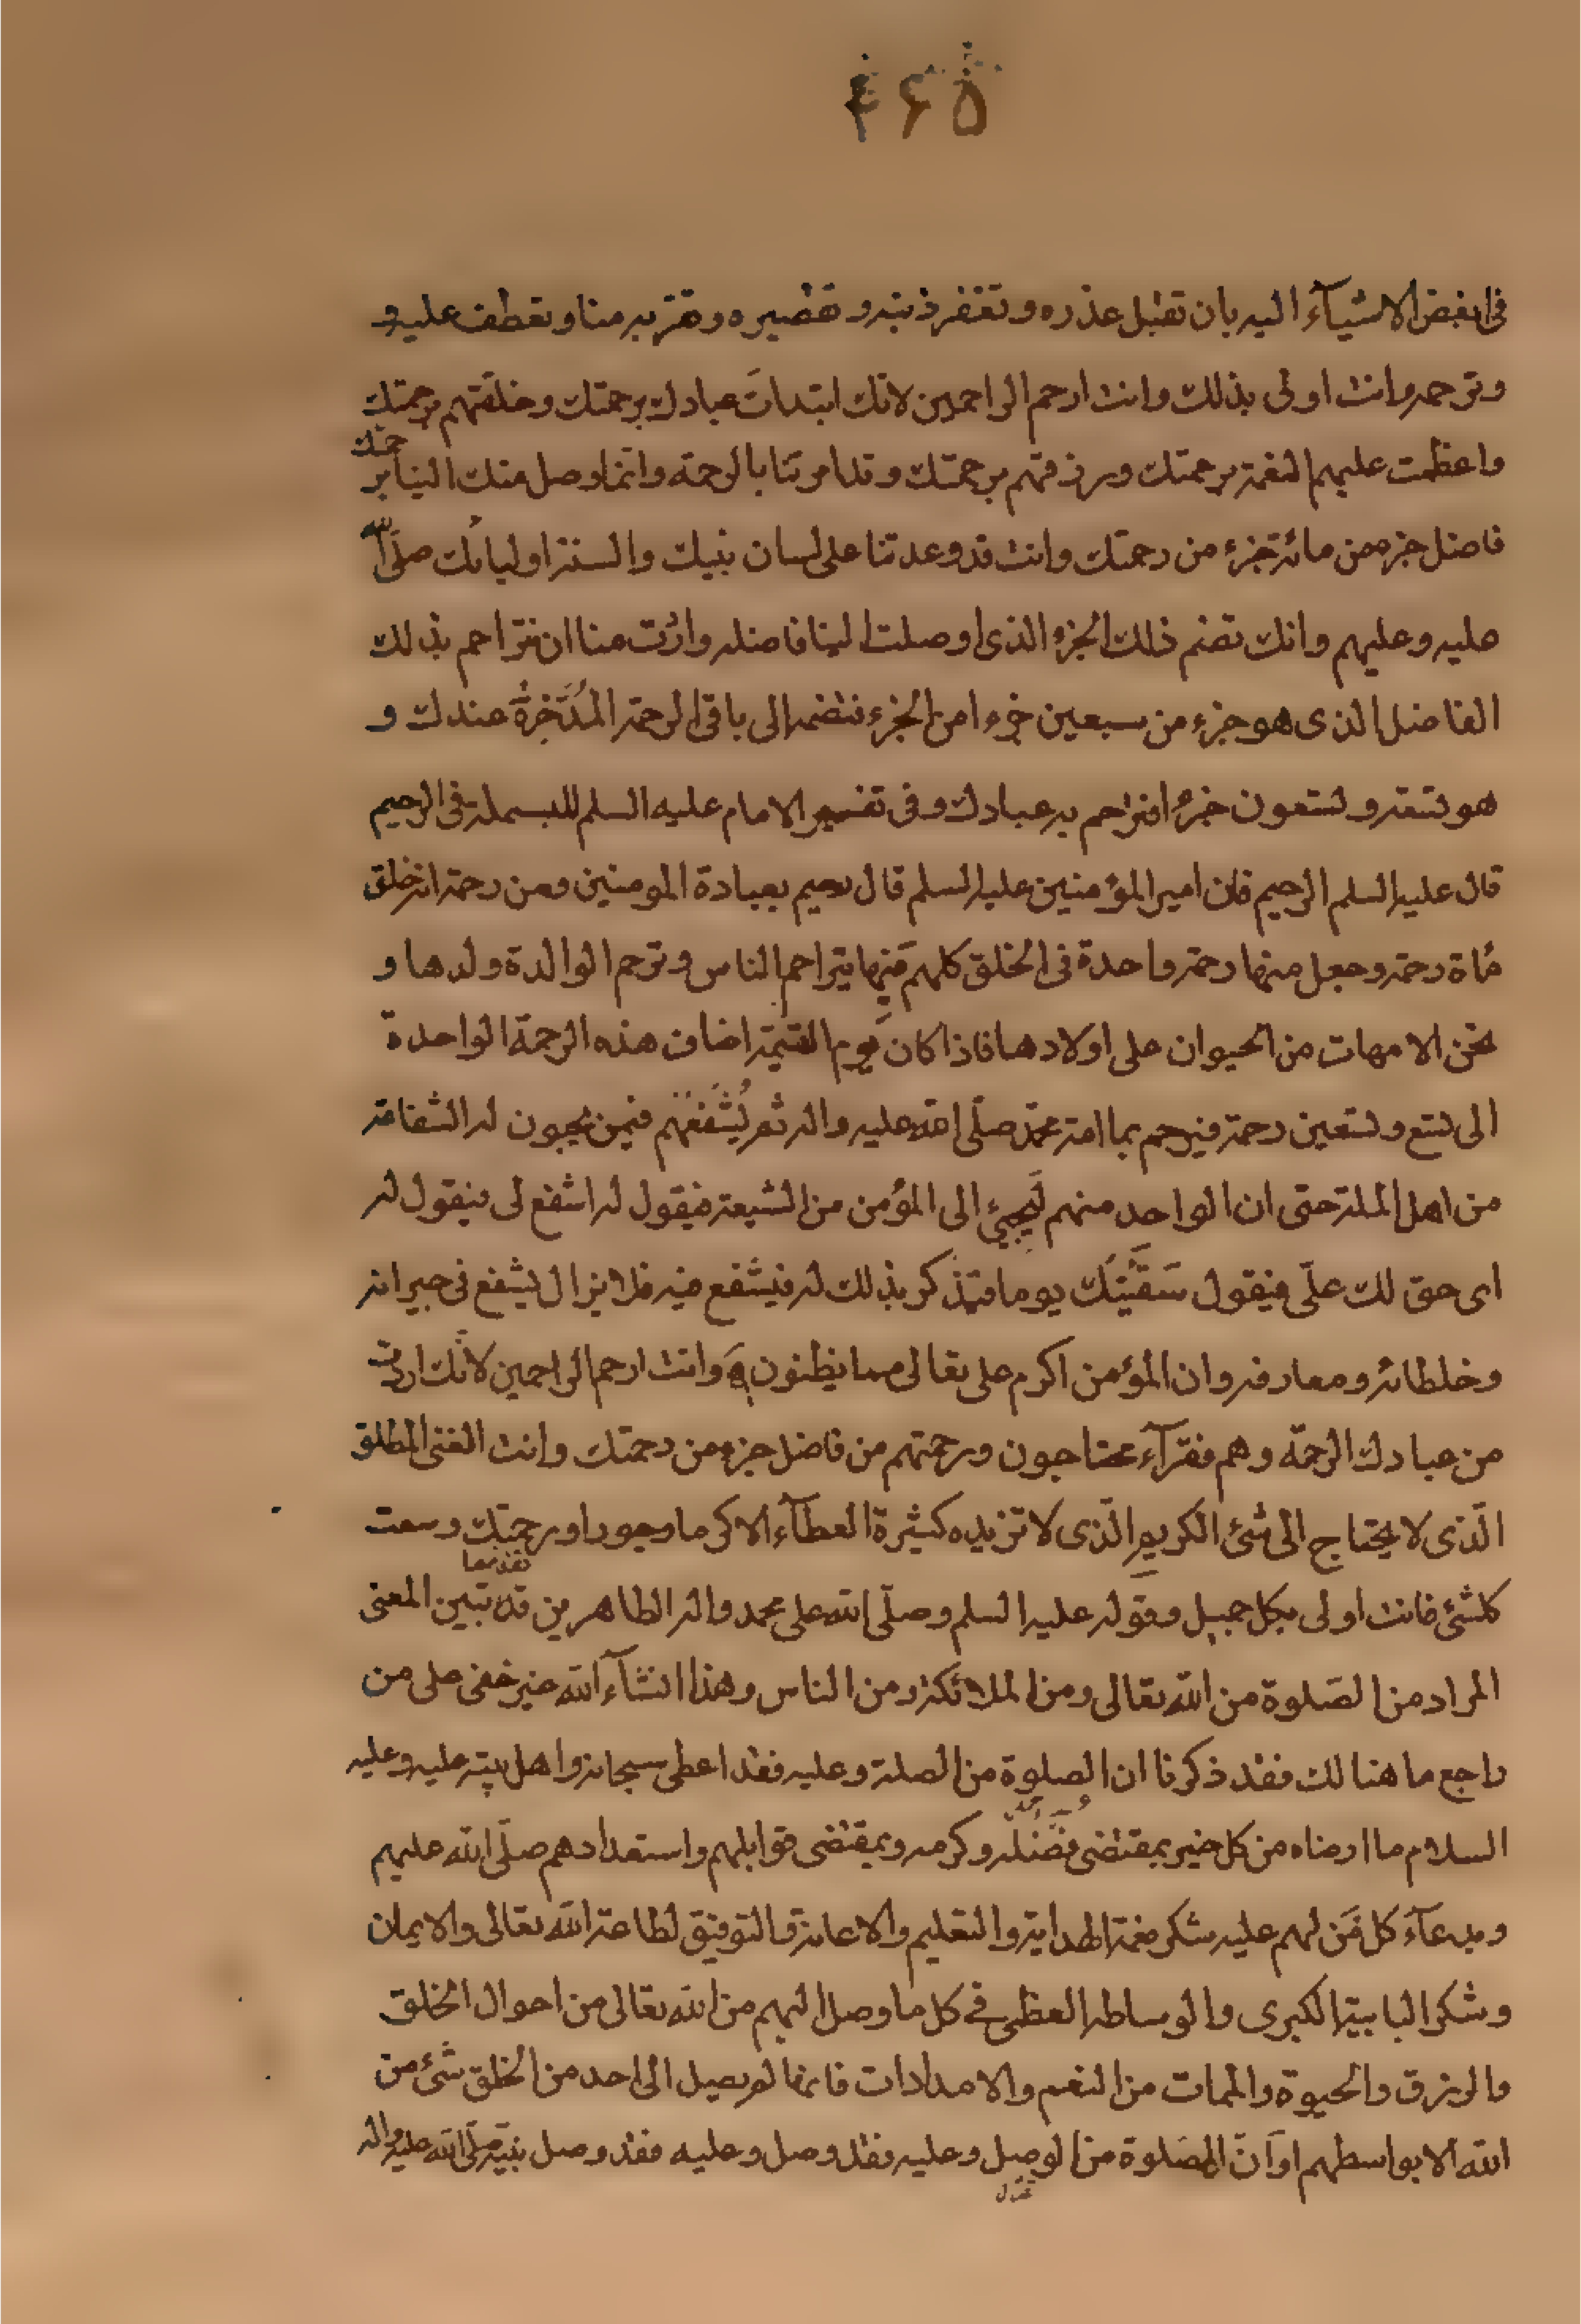 ۴۶۵
فى ابغض الاشيآء اليه بان تقبل عذره وتغفر ذنبه وتقصيره وتقربه منا وتعطف عليه و
وترحمه وانت اولى بذلك وانت ارحم الراحمين لانك ابتدات عبادك برحمتك وخلقتهم برحمتك
واعظمت عليهم النعمة برحمتك ورزقتهم برحمتك وقد امرتنا بالرحمة وانما وصل منك الينا برحمتك
فاضل جزء من مائة جزء من رحمتك وانت قد وعدتنا على لسان نبيك والسنة اوليائك صلى الله
عليه وعليهم وانك تضم ذلك الجزء الذى اوصلت الينا فاضله واردت منا ان نتراحم بذلك
الفاضل الذى هو جزء من سبعين جزءا من الجزء فتضمه الى باقى الرحمة المدّخرة عندك و
هو تسعة وتسعون جزءا فتراحم به عبادك وفى تفسير الامام عليه السلم للبسملة فى الرحيم
قال عليه السلم الرحيم فان امير المؤمنين عليه السلم قال رحيم بعباده المومنين ومن رحمته انه خلق
مأة رحمة وجعل منها رحمة واحدة فى الخلق كلهم فبها يتراحم الناس وترحم الوالدة ولدها و
تحن الامهات من الحيوان على اولادها فاذا كان يوم القيمة اضاف هذه الرحمة الواحدة
الى تسع وتسعين رحمة فيرحم بها امة محمد صلّى الله عليه واله ثم يُشَفّعُهم فيمن يحبون له الشفاعة
من اهل الملة حتى ان الواحد منهم لَيجيئ الى المؤمن من الشيعة فيقول له اشفع لى فيقول له
اى حق لك علىّ فيقول سَقَيْتُك يوما فيتذكر بذلك له فيشفع فيه فلا يزال يشفع فى جيرانه
وخلطائه ومعارفه وان المؤمن اكرم على تعالى مما يظنون ه وانت ارحم الراحمين لانك اردت
من عبادك الرحمة وهم فقرآء محتاجون ورحمتهم من فاضل جزء من رحمتك وانت الغنى المطلق
الّذى لا يحتاج الى شئ الكريم الّذى لا تزيده كثرة العطآء الا كرما وجودا ورحمتك وسعت
كلشئ فانت اولى بكل جميل وقوله عليه السلم وصلّى الله على محمد واله الطاهرين قد تقدمها تبين المعنى
المراد من الصّلوة من الله تعالى ومن الملائكة ومن الناس وهذا انشآء الله غير خفى على من
راجع ما هنا لك فقد ذكرنا ان الصلوة من الصلة وعليه فقد اعطى سبحانه واهل بيته عليه وعليه
السلام ما ارضاه من كل خير بمقتضى فضله وكرمه وبمقتضى قوابلهم واستعدادهم صلّى الله عليهم
وبدعآء كل مَن لهم عليه شكر نعمة الهداية والتعليم والاعانة والتوفيق لطاعة الله تعالى والايمان
وشكر البابية الكبرى والوساطة العظمى فى كل ما وصل اليهم من الله تعالى من احوال الخلق
والرزق والحيوة والممات من النعم والامدادات فانها لم يصل الى احد من الخلق شئ من
الله الا بواسطهم او انّ الصّلوة من الوصل وعليه فقد وصل وعليه فقد وصل نبيّه صلّى الله عليه واله